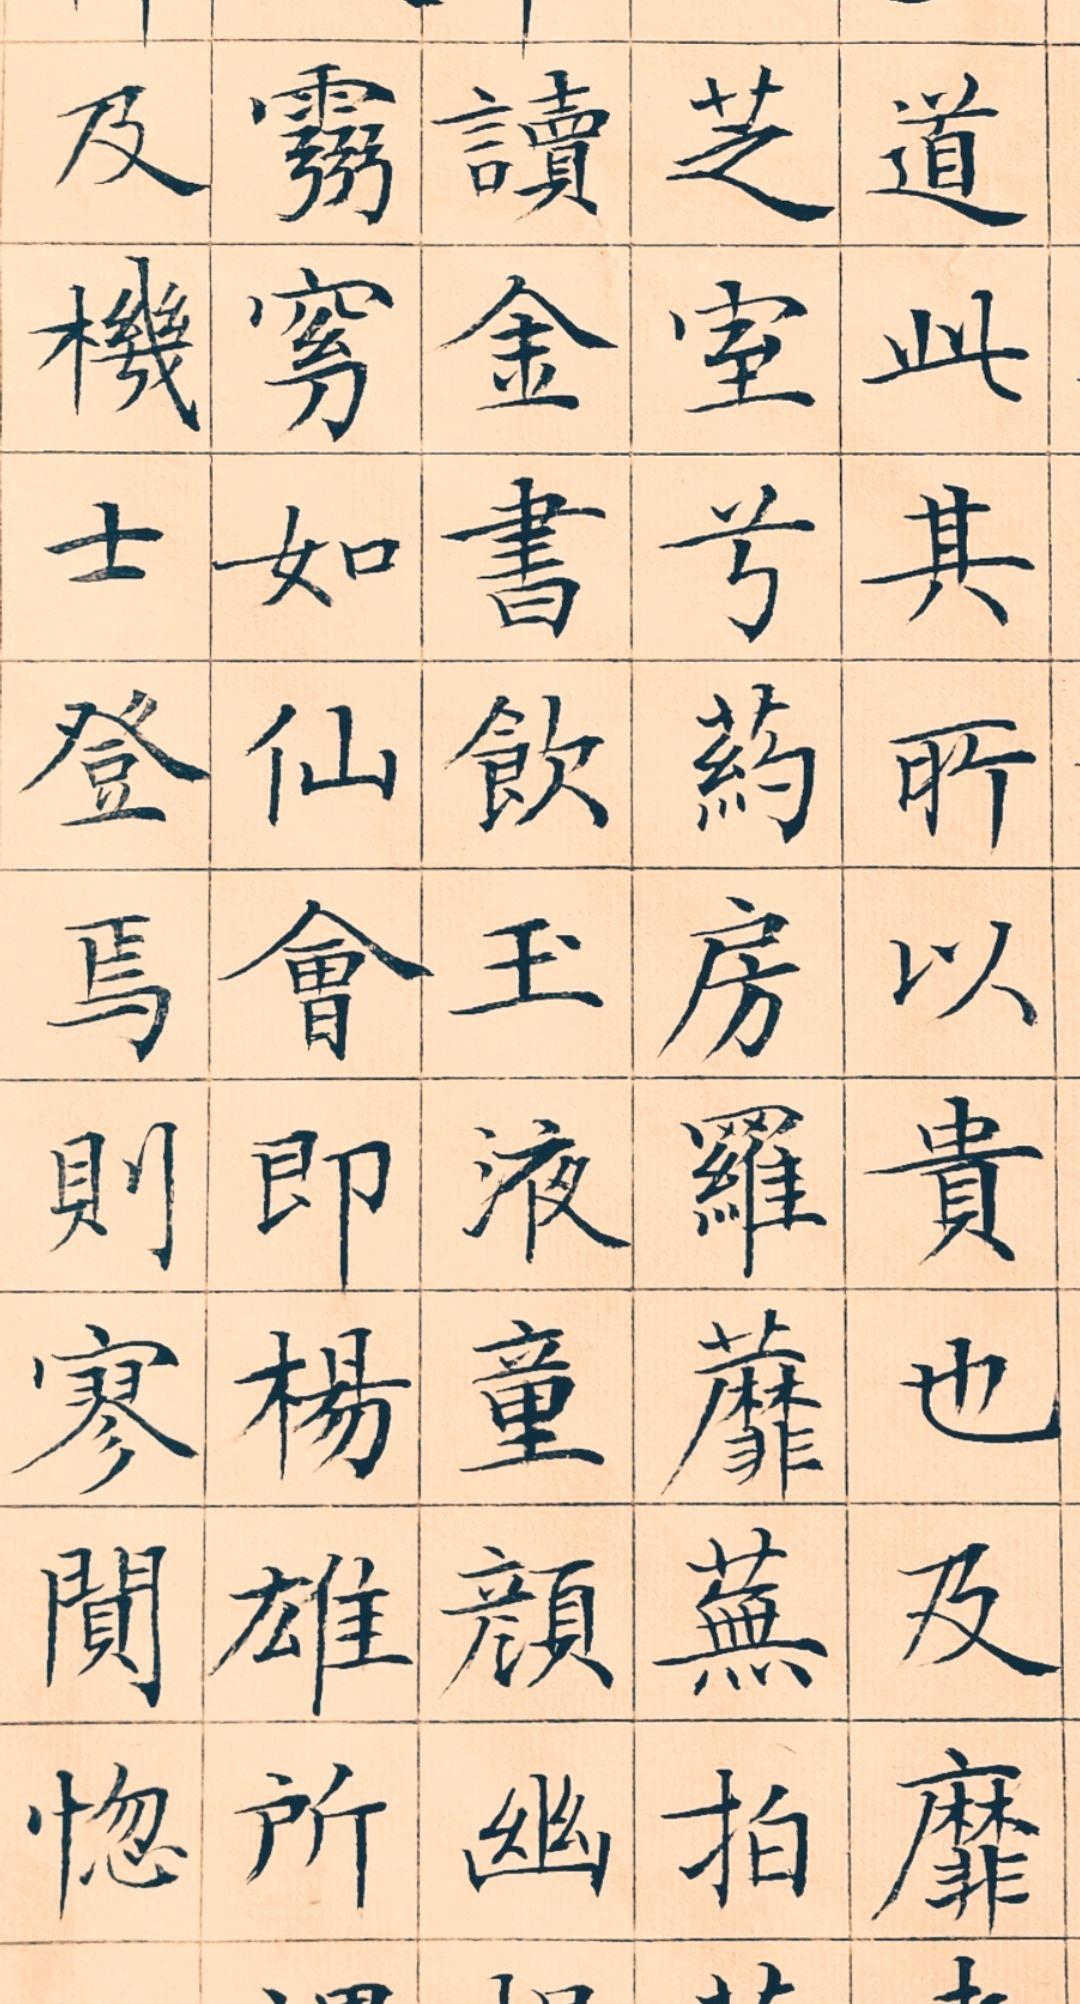 道此其所以貴也及靡
芝室兮葯房羅蘼蕪拍
讀金書飲玉液童顔幽
窈如仙會即楊雄所
及機士登焉則寥闃惚